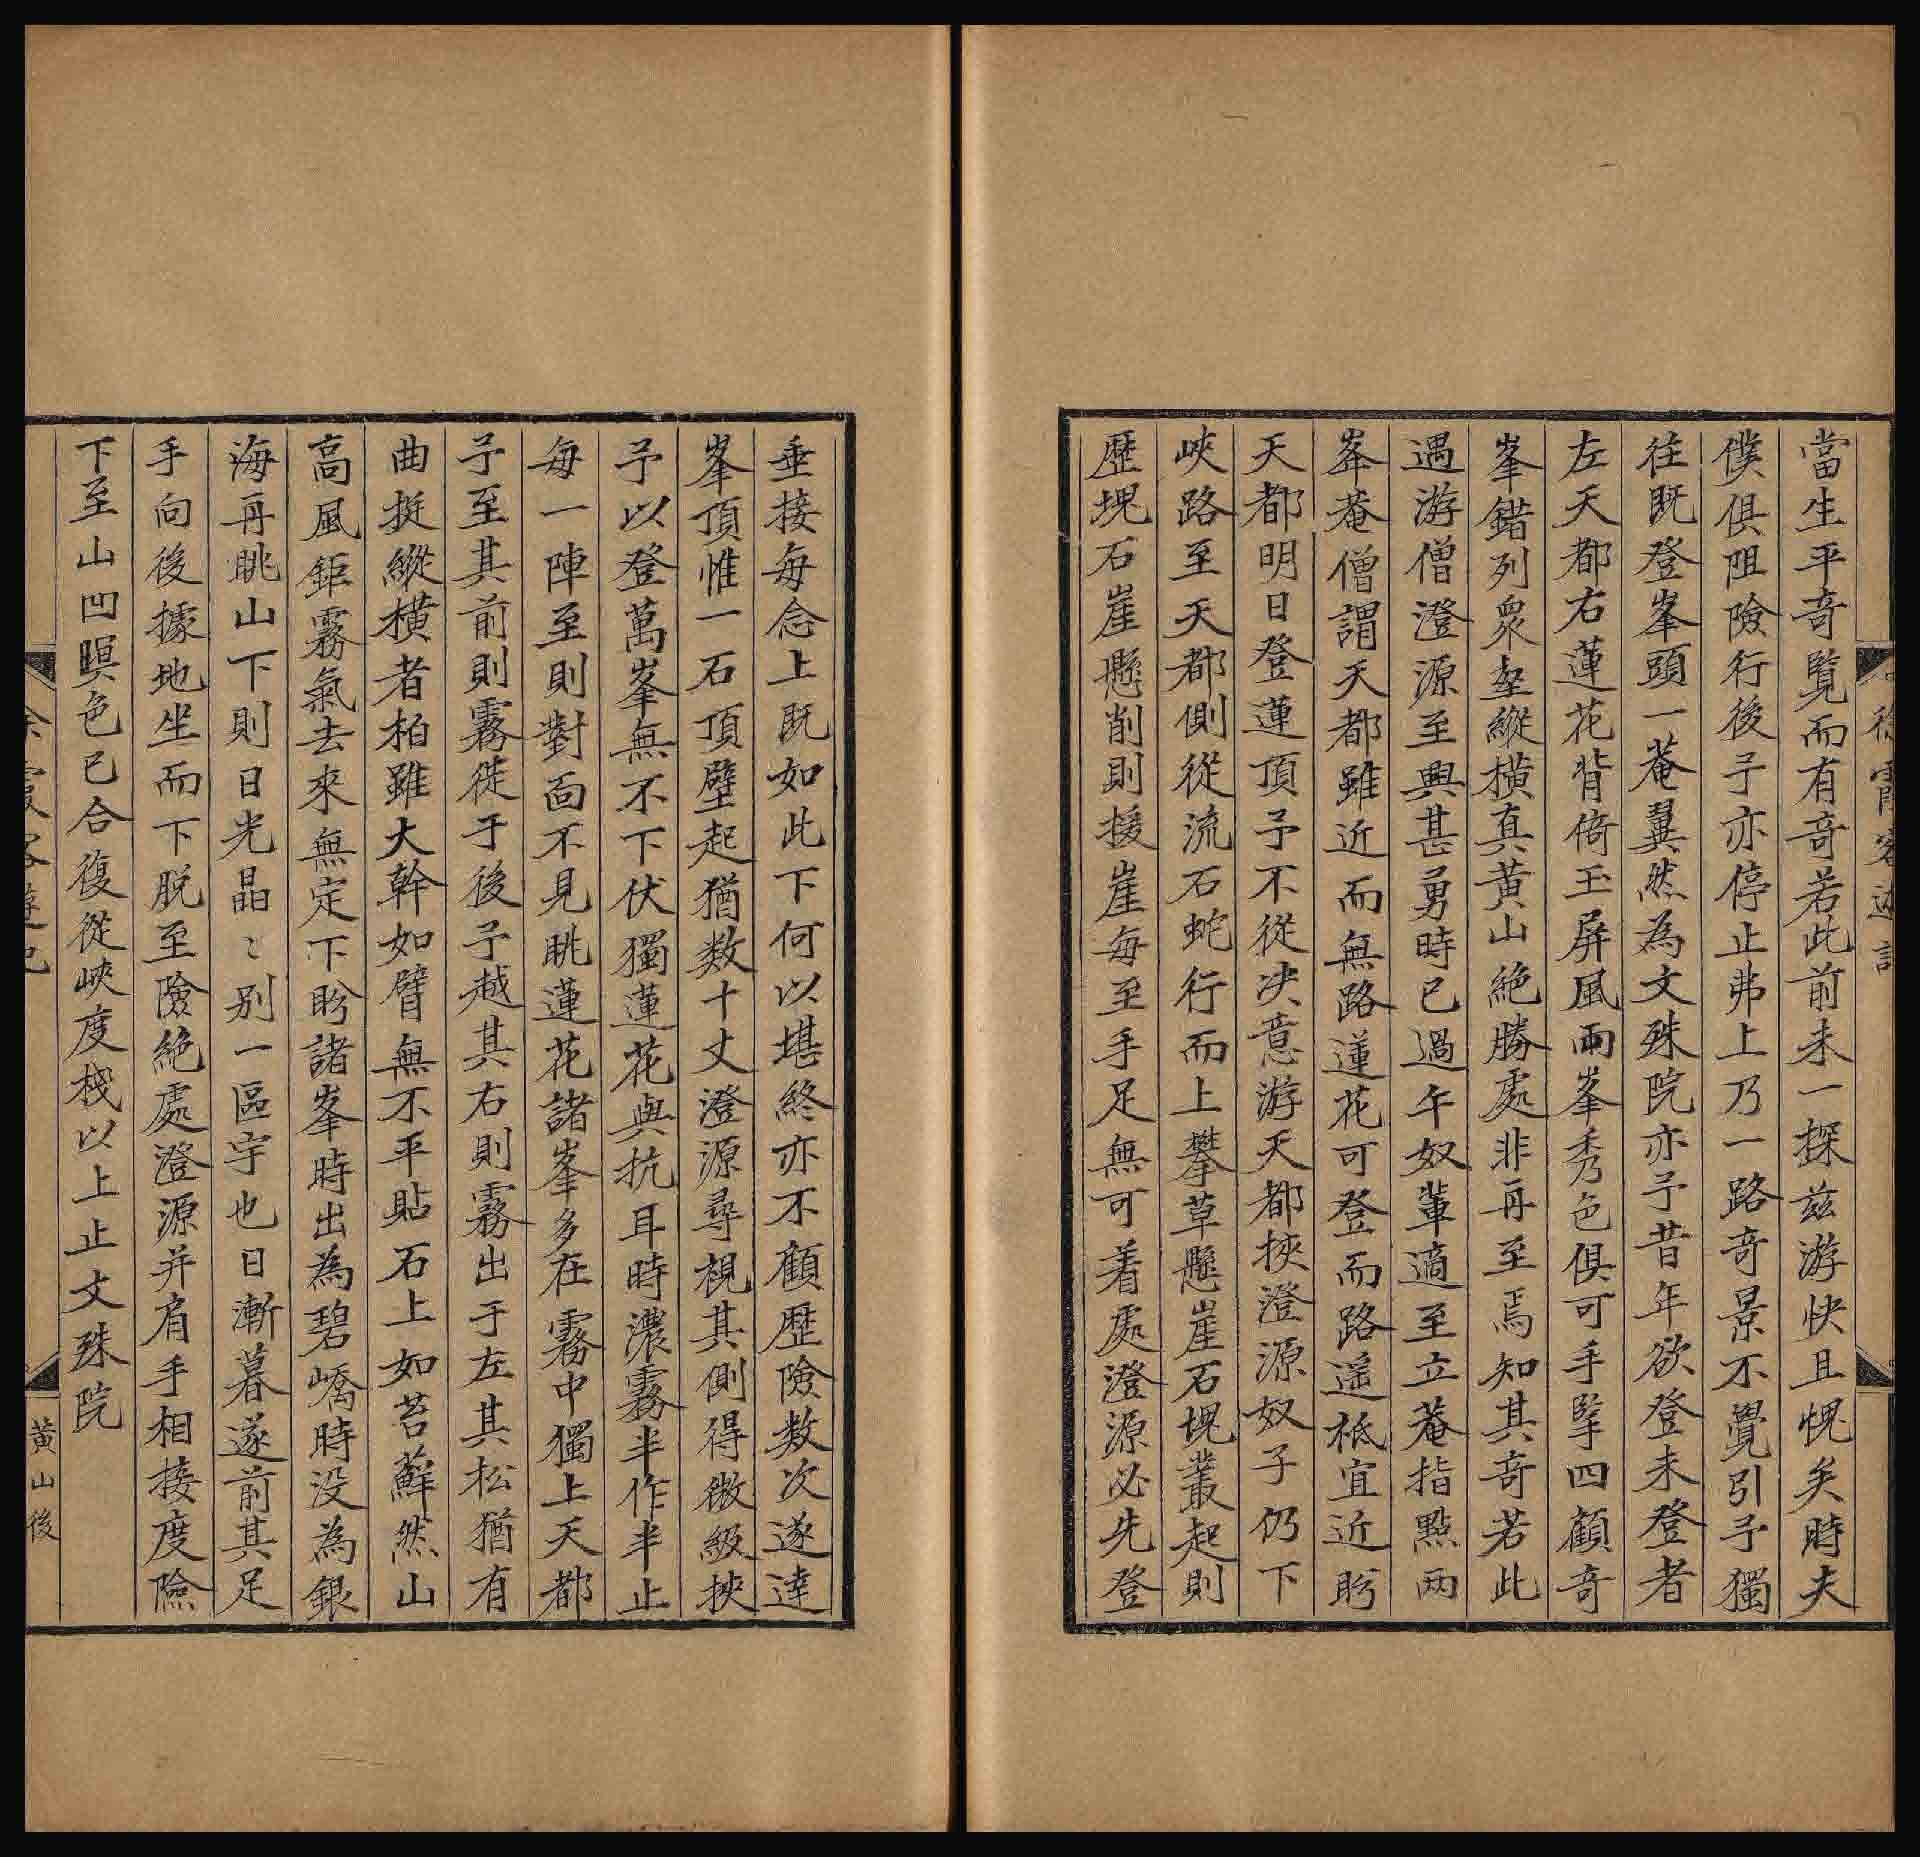 當生平奇覧而有奇若此前未一探兹游快且愧矣時夫
僕俱阻險行後予亦停止弗上乃一路奇景不覺引予獨
往既登峯頭一菴翼然為文殊院亦予昔年欲登未登者
左天都右蓮花背倚玉屏風兩峯秀色俱可手擥四顧奇
峯錯列衆壑縱横真黄山絶勝處非再至焉知其奇若此
遇游僧澄源至興甚勇時已過午奴輩適至立菴指點两
峯菴僧謂天都雖近而無路蓮花可登而路遥祗宜近盻
天都明日登蓮頂予不從决意游天都挾澄源奴子仍下
峽路至天都側從流石蛇行而上攀草懸崖石塊叢起則
歷塊石崖懸削則援崖每至手足無可着處澄源必先登
垂接每念上既如此下何以堪終亦不顧歷險数次遂達
峯頂惟一石頂壁起猶数十丈澄源尋視其側得微級挾
予以登萬峯無不下伏獨蓮花與抗耳時濃霧半作半止
每一陣至則對面不見眺蓮花諸峯多在霧中獨上天都
予至其前則霧徙于後予越其右則霧出于左其松猶有
曲挺縱横者柏雖大幹如臂無不平貼石上如苔蘚然山
高風鉅霧氣去來無定下盻諸峯時出為碧嶠時没為銀
海再眺山下則日光晶〻别一區宇也日漸暮遂前其足
手向後據地坐而下脱至險絶處澄源并肩手相接度險
下至山凹暝色已合復從峽度棧以上止文殊院
黄山後